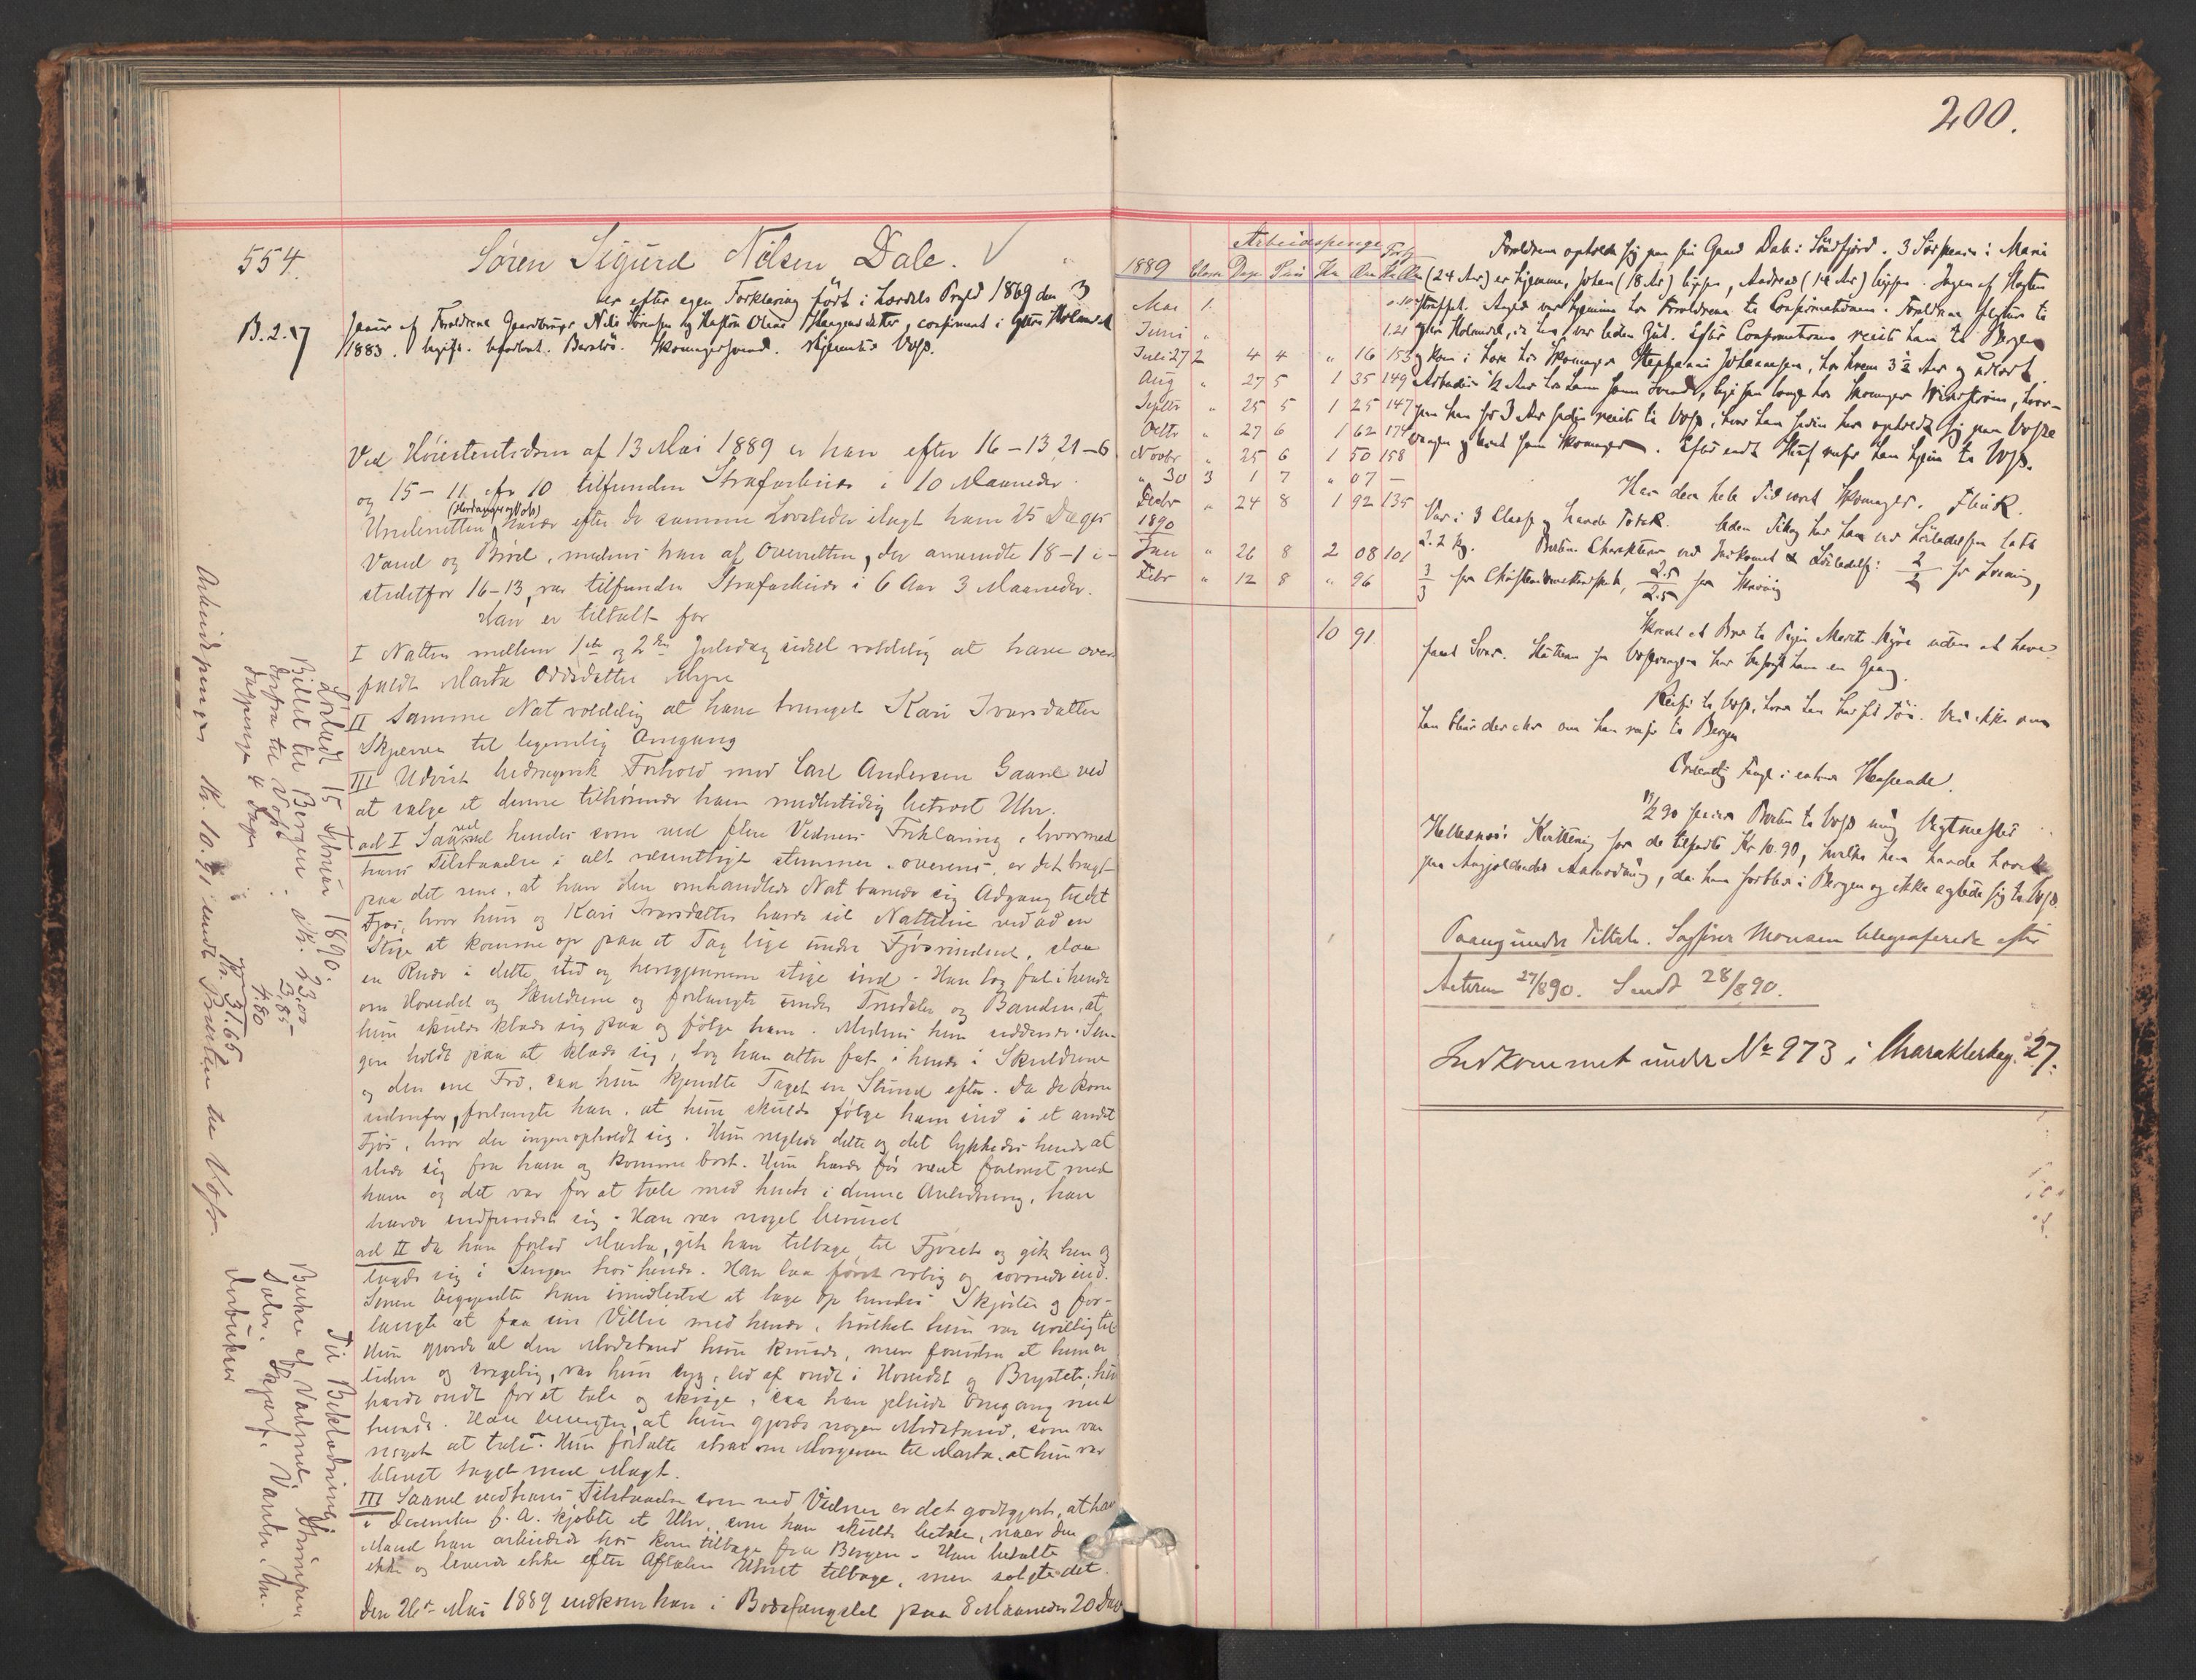 554.
Søren Sigurd Nilsen Dale. √
B. 2. 57
er efter egen Forklaring født i Lærdals Prgld 1869 den 3
Januar af Forældrene Gaardbruger Nils Sørensen og Hustru Oline Haagensdatter, confirmeret i Ytre Holmedal
1883. ugift. ubarbert. Barnløs. Skomagersvend. Hjemsted Voss.
Ved Høiesteretsdom af 13 Mai 1889 er han efter 16–13, 21–6
og 15–11 cfr 10 tilfunden Strafarbeide i 10 Maaneder.
Underretten (Hardanger og Voss) havde efter de samme Lovsteder ilagt ham 25 Dages
Vand og Brød, medens han af Overretten, der anvendte 18–1 i-
stedetfor 16–13, var tilfunden Strafarbeide i 6 Aar 3 Maaneder.
Han er tiltalt for
I Natten mellem 1ste og 2den Juledag sidstl voldelig at have over-
faldt Marta Oddsdatter Myre
II Samme Nat voldelig at have tvunget Kari Ivarsdatter
Skjerven til legemlig Omgang
III Udvist bedragersk Forhold mod Carl Andersen Gaard ved
at sælge et denne tilhørende ham midlertidig betroet Uhr.
ad I Saavel ved hendes som ved flere Vidners Forklaring, hvormed
hans Tilstaaelse i alt væsentligt stemmer overens, er det bragt
paa det rene, at han den omhandlede Nat banede sig Adgang til et
Fjøs, hvor hun og Kari Ivarsdatter havde sit Natteleie ved ad en
Stige at komme op paa et Tag lige under Fjøsvinduet, slaa
en Rude i dette itu og herigjennem stige ind. Han tog fat i hende
om Hovedet og Skuldrene og forlangte under Trudsler og Banden, at
hun skulde klæde sig paa og følge ham. Medens hun siddende i Sen-
gen holdt paa at klæde sig, tog han atter fat i hende i Skuldrene
og den ene Fod, saa hun kjendte Taget en Stund efter. Da de kom
udenfor, forlangte han, at hun skulde følge ham ind i et andet
Fjøs, hvor der ingen opholdt sig. Hun neglede dette og det lykkedes hende at
slide sig fra ham og komme bort. Hun havde før været forlovet med
ham og det var for at tale med hende i denne Anledning, han
havde indfundet sig. Han var noget beruset
ad II Da han forlod Marta, gik han tilbage til Fjøset og gik hen og
lagde sig i Sengen hos hende. Han laa først rolig og sovnede ind.
Senere begyndte han imidlertid at tage op hendes Skjørter og for-
langte at faa sin Villie med hende, hvilket hun var uvillig til.
Hun gjorde al den Modstand hun kunde, men foruden at hun er
liden og svagelig, var hun syg, led af ondt i Hovedet og Brystet, hun
havde ondt for at tale og skrige, saa han pleiede Omgang med
hende. Han benegter, at hun gjorde nogen Modstand, som var
noget at tale. Hun fortalte strax om Morgenen til Marta, at hun var
blevet taget med Magt.
III Saavel ved hans Tilstaaelse som ved Vidner er det godtgjort, at han
i December f. A. kjøbte et Uhr, som han skulde betale, naar den
Mand han arbeidede hos kom tilbage fra Bergen. Han betalte
ikke og leverede ikke efter Aftalen Uhret tilbage, men solgte det.
Den 26de Mai 1889 indkom han i Bodsfængslet paa 8 Maaneder 20 Dage
Løsladt 15 Februar 1890.
Billet til Bergen. Kr. 23,00
derfra til Voss. 3,85
Dagpenge 4 Dage 4,80
Kr. 31,65
Arbeidspenge Kr. 10.91 sendt Presten til Voss.
Til Beklædning;
Buxe af Vadmel. Strømper
Saler. Skjærf. Vanter. Un-
derbuxer
200.
Arbeidspenge
1889 Classe Dage Præm Kr Øre
Mai 1 "
Juni " 1,21
Juli 27 2 4 4 " 16 153
Aug " 27 5 1 35 149
Septbr " 25 5 1 25 147
Octbr " 27 6 1 62 174
Novbr " 25 6 1 50 158
" 30 3 1 7 " 07 –
Decbr " 24 8 1 92 135
1890
Jan " 26 8 2 08 101
Febr " 12 8 " 96
10 91
Forældrene opholder sig paa sin Gaard Dale i Søndfjord. 3 Søskende: Marie
(24 Aar) er hjemme, Johan (18 Aar) ligesaa, Andreas (14 Aar) ligesaa. Ingen af Slægten
straffet. Angj var hjemme hos Forældrene til Confirmationen. Forældrene flyttede til
Ytre Holmedal, da han var liden Gut. Efter Confirmationen reiste han til Bergen
og kom i Lære hos Skomager Stephanus Johannesen, hos hvem 3½ Aar og udlært.
Arbeidede ½ Aar hos ham som Svend, ligesaa længe hos Skomager Widerstrøm, hvor-
paa han for 3 Aar siden reiste til Voss, hvor han siden har opholdt sig paa Vosse
vangen og levet som Skomager. Efter endt Straf reiser han hjem til Voss.
Har den hele Tid været Skomager. Flink.
Var i 3 Classe og havde Tobak. Uden Tillæg har han ved Løsladelsen tabt
2.2 kg. Presten: Charakteren ved Indkomst & Løsladelse: 2/2 for Læsning,
3/3 for Christendomskundskab, 2.5/2.5 for Skrivning
Skrevet et Brev til Pigen Marta Myre uden at have
faaet Svar. Søsteren fra Vossevangen har besøgt ham en Gang.
Reiser til Voss, hvor han har sit Tøi. Ved ikke om
han bliver der eller om han reiser til Bergen
Ordentlig Fange i enhver Henseende.
17/2 90 sender Presten til Voss mig Vegtmester
Hellesnes's Kvittering for de tilsendte Kr 10.90, hvilke han havde hævet
paa Angjældendes Anmodning, da han forblev i Bergen og ikke agtede sig til Voss.
Paany under Tiltale. Sagfører Monsen telegraferede efter
Acterne 27/8 90. Sendt 28/8 90.
Indkommet under No 973 i Charakterbog. 27.